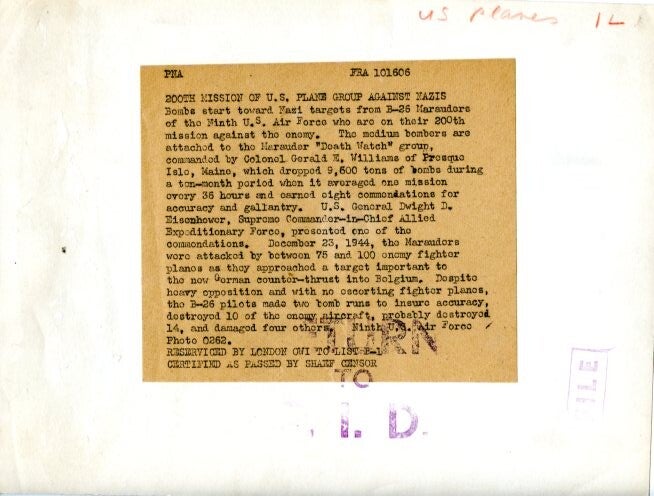 us planes IL
PNA FRA 101606
200TH MISSION OF U.S. PLANE GROUP AGAINST NAZIS
Bombs start toward Nazi targets from B-26 Marauders
of the Ninth U.S. Air Force who are on their 200th
mission against the enemy. The medium bombers are
attached to the Marauder "Death Watch" group,
commanded by Colonel Gerald E. Williams of Presque
Isle, Maine, which dropped 9,600 tons of bombs during
a ten-month period when it averaged one mission
every 36 hours and earned eight commendations for
accuracy and gallantry. U.S. General Dwight D.
Eisenhower, Supreme Commander-in-Chief Allied
Expeditionary Force, presented one of the
commendations. December 23, 1944, the Marauders
were attacked by between 75 and 100 enemy fighter
planes as they approached a target important to
the new German counter-thrust into Belgium. Despite
heavy opposition and with no escorting fighter planes,
the B-26 pilots made two bomb runs to insure accuracy,
destroyed 10 of the enemy aircraft, probably destroyed
14, and damaged four others. Ninth U.S. Air Force
Photo 0262.
RESERVICED BY LONDON OWI TO LIST B-1
CERTIFIED AS PASSED BY SHAEF CENSOR
TURN
TO
. I. D.
FILE